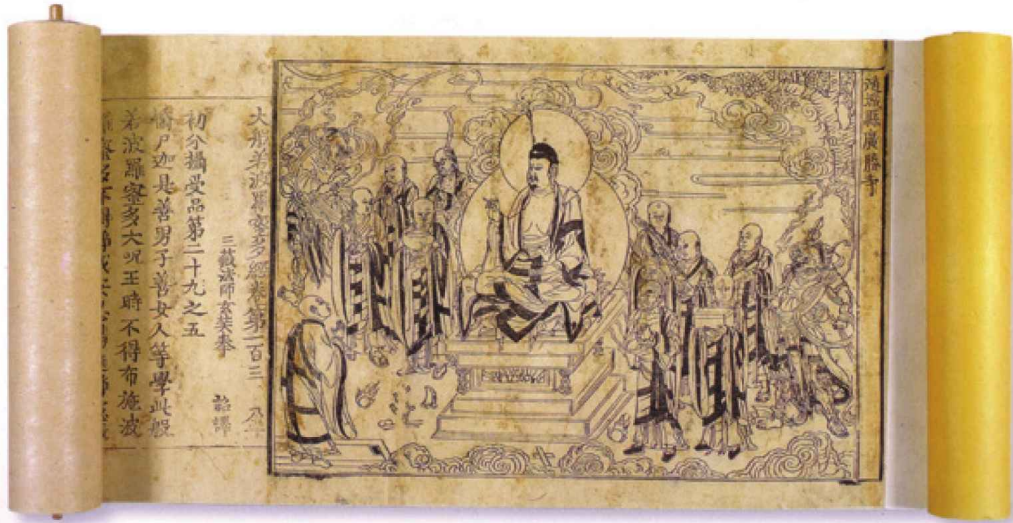 趙城縣廣勝寺
大般若波羅蜜多經卷第一百三
三藏法師玄奘奉 詔譯
初分攝受品第二十九之五
憍尸迦是善男子善女人等學此般
若波羅蜜多大呪王時不得布施波